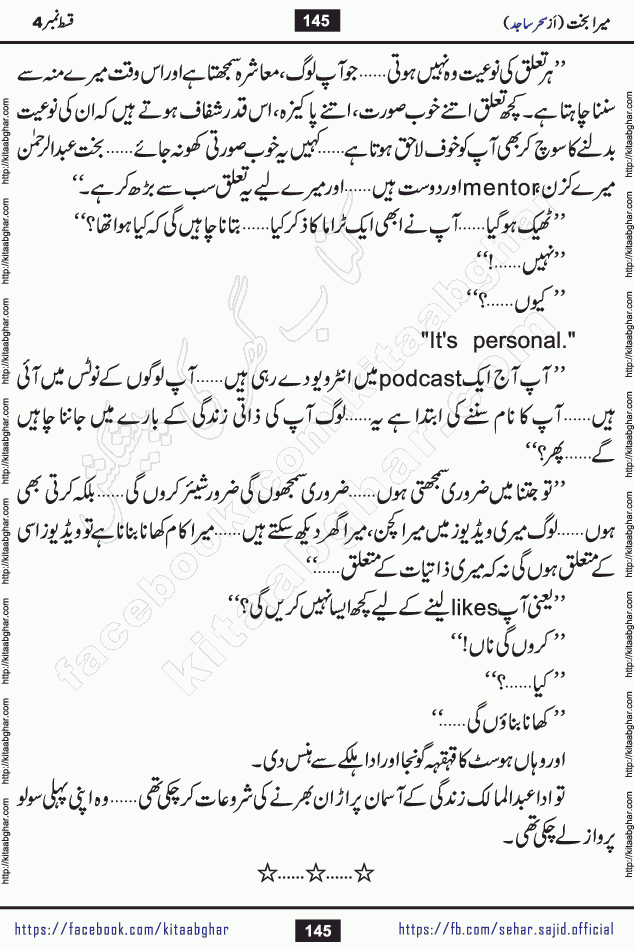 میرا بخت (از سحر ساجد) 145 قسط نمبر 4
’’ہر تعلق کی نوعیت وہ نہیں ہوتی......جو آپ لوگ، معاشرہ سمجھتا ہے اور اس وقت میرے منہ سے
سننا چاہتا ہے۔ کچھ تعلق اتنے خوب صورت، اتنے پاکیزہ، اس قدر شفاف ہوتے ہیں کہ ان کی نوعیت
بدلنے کا سوچ کر بھی آپ کو خوف لاحق ہوتا ہے......کہیں یہ خوب صورتی کھو نہ جائے......بخت عبدالرحمٰن
میرے کزن، mentor اور دوست ہیں......اور میرے لیے یہ تعلق سب سے بڑھ کر ہے۔‘‘
’’ٹھیک ہو گیا......آپ نے ابھی ایک ٹراما کا ذکر کیا......بتانا چاہیں گی کہ کیا ہوا تھا؟‘‘
’’نہیں......!‘‘
’’کیوں......؟‘‘
"It's personal."
’’آپ آج ایک podcast میں انٹرویو دے رہی ہیں......آپ لوگوں کے نوٹس میں آئی
ہیں......آپ کا نام سننے کی ابتدا ہے یہ......لوگ آپ کی ذاتی زندگی کے بارے میں جاننا چاہیں
گے......پھر؟‘‘
’’تو جتنا میں ضروری سمجھتی ہوں......ضروری سمجھوں گی ضرور شیئر کروں گی......بلکہ کرتی بھی
ہوں......لوگ میری ویڈیوز میں میرا کچن، میرا گھر دیکھ سکتے ہیں......میرا کام کھانا بنانا ہے تو ویڈیوز اسی
کے متعلق ہوں گی نہ کہ میری ذاتیات کے متعلق......‘‘
’’یعنی آپ likes لینے کے لیے کچھ ایسا نہیں کریں گی؟‘‘
’’کروں گی ناں!‘‘
’’کیا......؟‘‘
’’کھانا بناؤں گی......‘‘
اور وہاں ہوسٹ کا قہقہہ گونجا اور ادا ہلکے سے ہنس دی۔
تو ادا عبدالمالک زندگی کے آسمان پر اڑان بھرنے کی شروعات کر چکی تھی......وہ اپنی پہلی سولو
پرواز لے چکی تھی۔
☆......☆......☆
https://facebook.com/kitaabghar 145 https://fb.com/sehar.sajid.official
http://kitaabghar.com http://kitaabghar.com http://kitaabghar.com http://kitaabghar.com http://kitaabghar.com http://kitaabghar.com http://kitaabghar.com http://kitaabghar.com
http://kitaabghar.com http://kitaabghar.com http://kitaabghar.com http://kitaabghar.com http://kitaabghar.com http://kitaabghar.com http://kitaabghar.com http://kitaabghar.com
کتاب گھر کی پیشکش
facebook.com/kitaabghar
kitaabghar.com